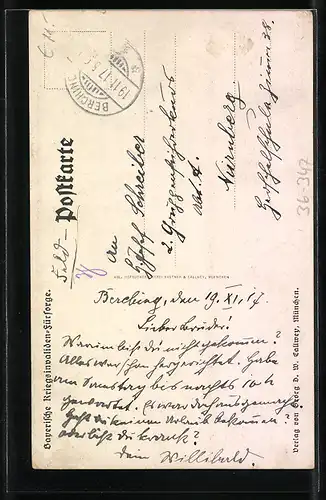 Bayerische Kriegsinvaliden-Fürsorge.
Feld- Postkarte
BERCHING
19 11 17
An
Schreiber
2.
Abt. A.
Nürnberg
36-347
Verlag von Georg D. W. Callwey, München.
Berching, den 19. XI. 17.
Lieber Bruder!
Warum bist du nicht gekommen?
Alles war schon hergerichtet. Habe
am Samstag bis nachts 10 h
gewartet. Es war
Hast du keinen Urlaub bekommen?
oder bist du krank?
Dein Willibald.